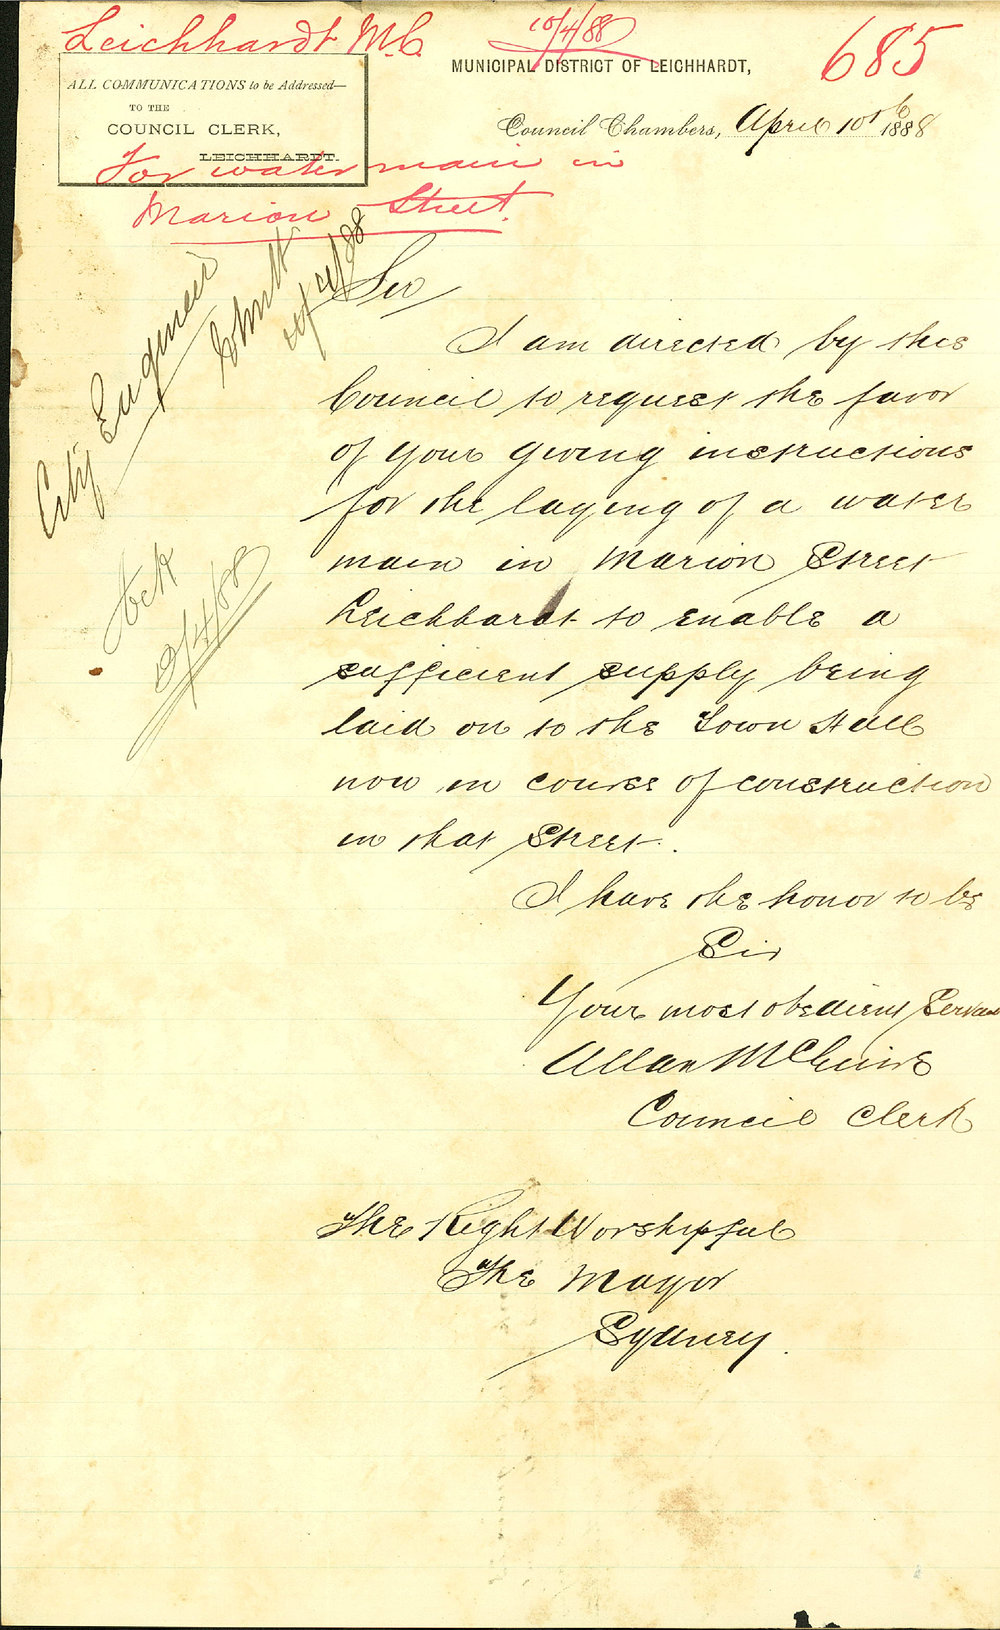 Leichhardt M.C
10/4/88
685
MUNICIPAL DISTRICT OF LEICHHARDT,
ALL COMMUNICATIONS to be Addressed—
TO THE
COUNCIL CLERK,
LEICHHARDT.
Council Chambers, April 10th 1888
For water main in
Marion Street.
City Engineer
/4/88
Sir
I am directed by this
Council to request the favor
of your giving instructions
for the laying of a water
main in Marion Street
Leichhardt to enable a
sufficient supply being
laid on to the Town Hall
now in course of construction
in that Street.
I have the honor to be
Sir
Your most obedient Servant
Allan McGuire
Council Clerk
The Right Worshipful
The Mayor
Sydney.